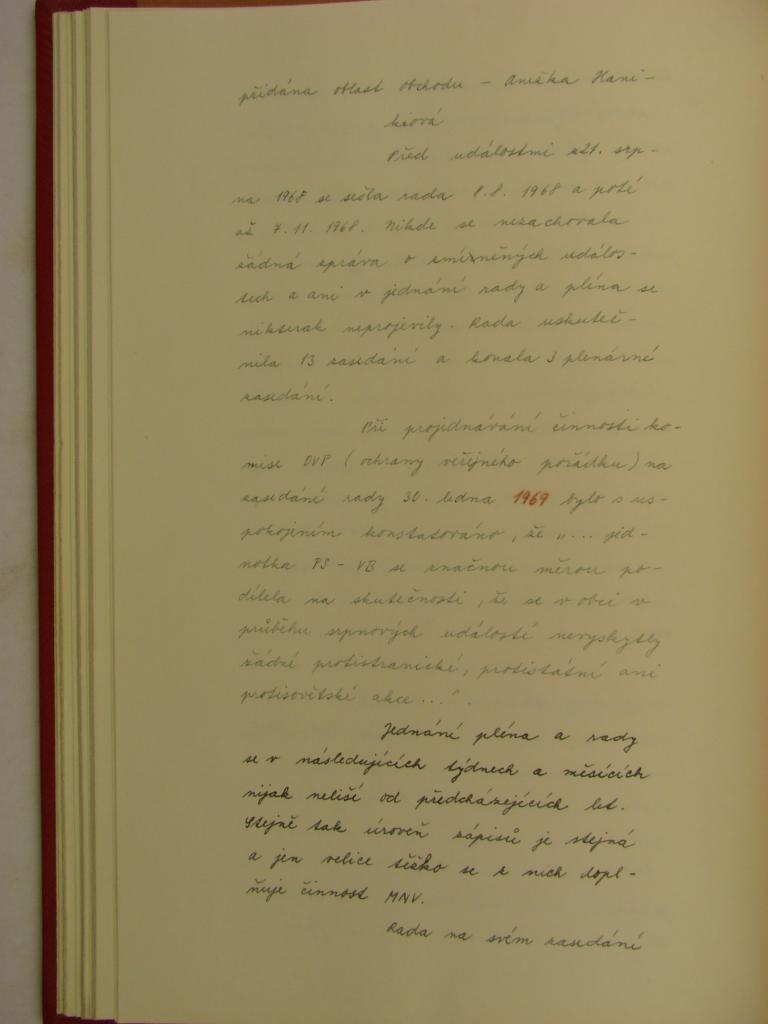 přidána oblast obchodu - Anežka Haní-
ková
Před událostmi z 21. srp-
na 1968 se sešla rada 8.8. 1968 a poté
až 7.11. 1968. Nikde se nezachovala
žádná zpráva o zmíněných událos-
tech a ani v jednání rady a pléna se
nikterak neprojevily. Rada uskuteč-
nila 13 zasedání a konala 3 plenární
zasedání.
Při projednávání činnosti ko-
mise OVP (ochrany veřejného pořádku) na
zasedání rady 30. ledna 1969 bylo s us-
pokojením konstatováno, že "... jed-
notka PS - VB se značnou měrou po-
dílela na skutečnosti, že se v obci v
průběhu srpnových událostí nevyskytly
žádné protistranické, protistátní ani
protisovětské akce...".
Jednání pléna a rady
se v následujících týdnech a měsících
nijak neliší od předcházejících let.
Stejně tak úroveň zápisů je stejná
a jen velice těžko se z nich dopl-
ňuje činnost MNV.
Rada na svém zasedání